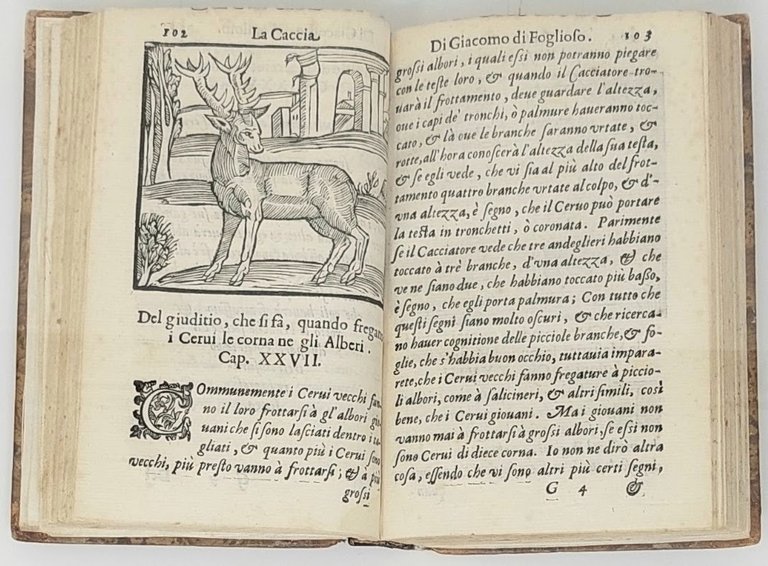 102
La Caccia
Del giuditio, che si fà, quando fregano
i Cerui le corna ne gli Alberi.
Cap. XXVII.
Communemente i Cerui vecchi fan-
no il loro frottarsi à gl'albori gio
uani che si sono lasciati dentro i ta
gliati, & quanto più i Cerui sono
vecchi, più presto vanno à frottarsi; & a più
grossi
Di Giacomo di Foglioso. 103
grossi albori, i quali essi non potranno piegare
con le teste loro, & quando il Cacciatore tro-
uarà il frottamento, deue guardare l'altezza,
oue i capi de' tronchi, ò palmure haueranno toc-
cato, & là oue le branche saranno vrtate, &
rotte, all'hora conoscerà l'altezza della sua testa,
& se egli vede, che vi sia al più alto del frot-
tamento quattro branche vrtate al colpo, & d'-
vna altezza, è segno, che il Ceruo può portare
la testa in tronchetti, ò coronata. Parimente
se il Cacciatore vede che tre andeglieri habbiano
toccato à trè branche, d'vna altezza, & che
ve ne siano due, che habbiano toccato più basso,
è segno, che egli porta palmura; Con tutto che
questi segni siano molto oscuri, & che ricerca-
no hauer cognitione delle picciole branche, & fo-
glie, che s'habbia buon occhio, tuttauia impara-
rete, che i Cerui vecchi fanno fregature à piccio-
li albori, come à salicineri, & altri simili, così
bene, che i Cerui giouani. Ma i giouani non
vanno mai à frottarsi à grossi albori, se essi non
sono Cerui di diece corna. Io non ne dirò altra
cosa, essendo che vi sono altri più certi segni,
G 4 &